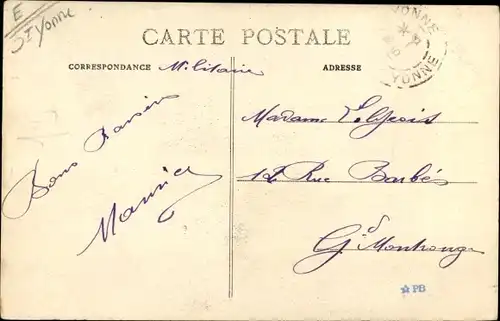 E
St Yonne
CARTE POSTALE
CORRESPONDANCE Militaire
ADRESSE
YONNE
YONNE
Bons Baisers
Maurice
Madame
12 Rue Barbès
Gd Montrouge
PB